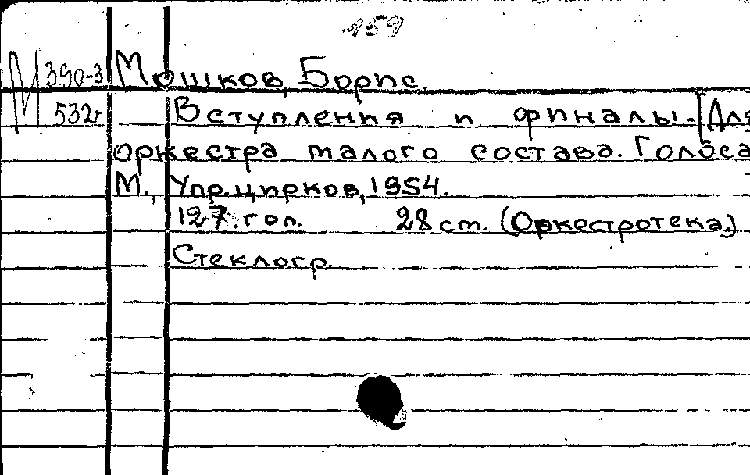 159
М 390-3 Мошков, Борис.
532г Вступления и финалы. [Для
оркестра малого состава. Голоса
М., Упр. цирков, 1954.
127. гол. 28 см. (Оркестротека.)
Стеклогр.